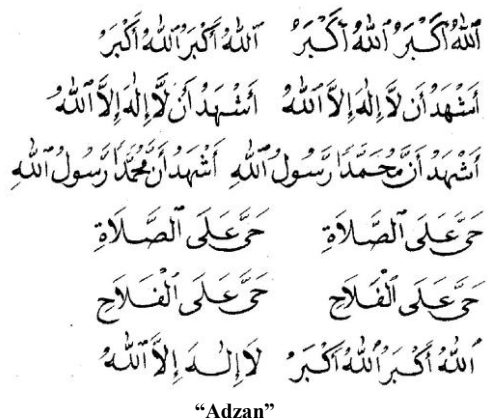 اَللّٰهُ أَكْبَرُ اَللّٰهُ أَكْبَرُ اَللّٰهُ أَكْبَرُ اَللّٰهُ أَكْبَرُ
أَشْهَدُ أَن لَّا إِلٰهَ إِلَّا ٱللّٰهُ أَشْهَدُ أَن لَّا إِلٰهَ إِلَّا ٱللّٰهُ
أَشْهَدُ أَنَّ مُحَمَّدًا رَّسُولُ ٱللّٰهِ أَشْهَدُ أَنَّ مُحَمَّدًا رَّسُولُ ٱللّٰهِ
حَيَّ عَلَى ٱلصَّلَاةِ حَيَّ عَلَى ٱلصَّلَاةِ
حَيَّ عَلَى ٱلْفَلَاحِ حَيَّ عَلَى ٱلْفَلَاحِ
اَللّٰهُ أَكْبَرُ اَللّٰهُ أَكْبَرُ لَا إِلٰهَ إِلَّا ٱللّٰهُ
“Adzan”